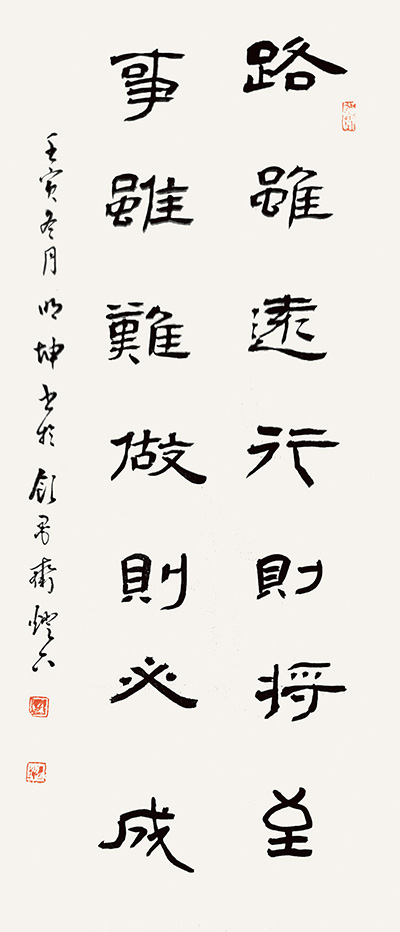 路雖遠行則將至
事雖難做則必成
壬寅冬月明坤書於飲墨齋燈下